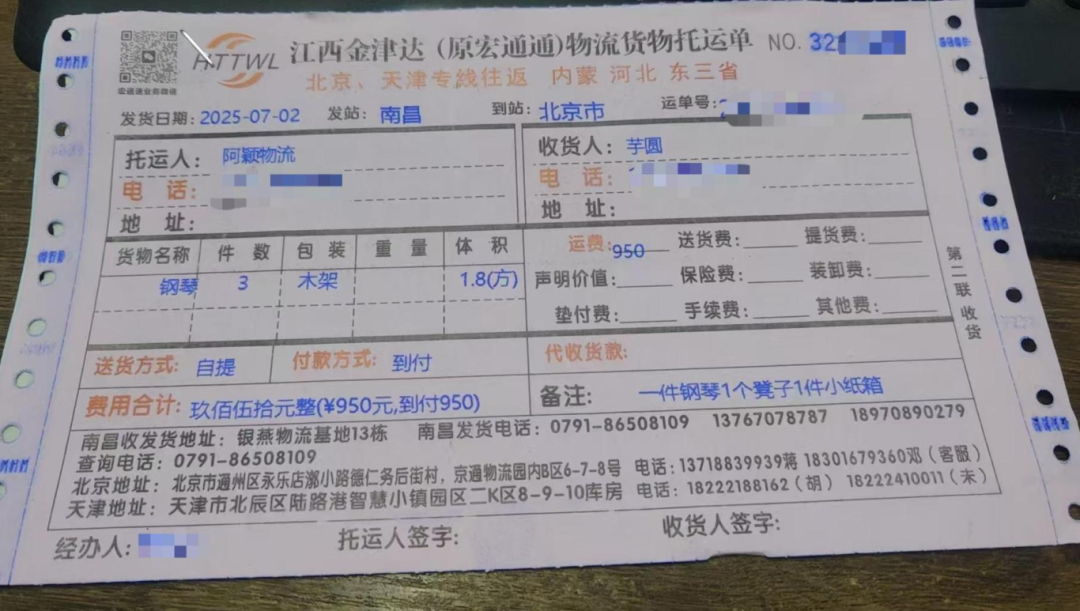 HTTWL 江西金津达（原宏通通)物流货物托运单 NO. 32
宏通通业务微信
北京、天津专线往返 内蒙 河北 东三省
发货日期: 2025-07-02 发站: 南昌 到站: 北京市 运单号:
托运人: 阿颖物流
电 话:
地 址:
收货人: 芋圆
电 话:
地 址:
货物名称 件 数 包 装 重 量 体 积
钢琴 3 木架 1.8(方)
运费: 950 送货费: 提货费:
声明价值: 保险费: 装卸费:
垫付费: 手续费: 其他费:
第二联 收货
送货方式: 自提 付款方式: 到付 代收货款:
费用合计: 玖佰伍拾元整(¥950元,到付950)
备注: 一件钢琴1个凳子1件小纸箱
南昌收发货地址: 银燕物流基地13栋 南昌发货电话: 0791-86508109 13767078787 18970890279
查询电话: 0791-86508109
北京地址: 北京市通州区永乐店漷小路德仁务后街村，京通物流园内B区6-7-8号 电话: 13718839939蒋 18301679360邓（客服）
天津地址: 天津市北辰区陆路港智慧小镇园区二K区8-9-10库房 电话: 18222188162（胡） 18222410011（未）
经办人: 托运人签字: 收货人签字: